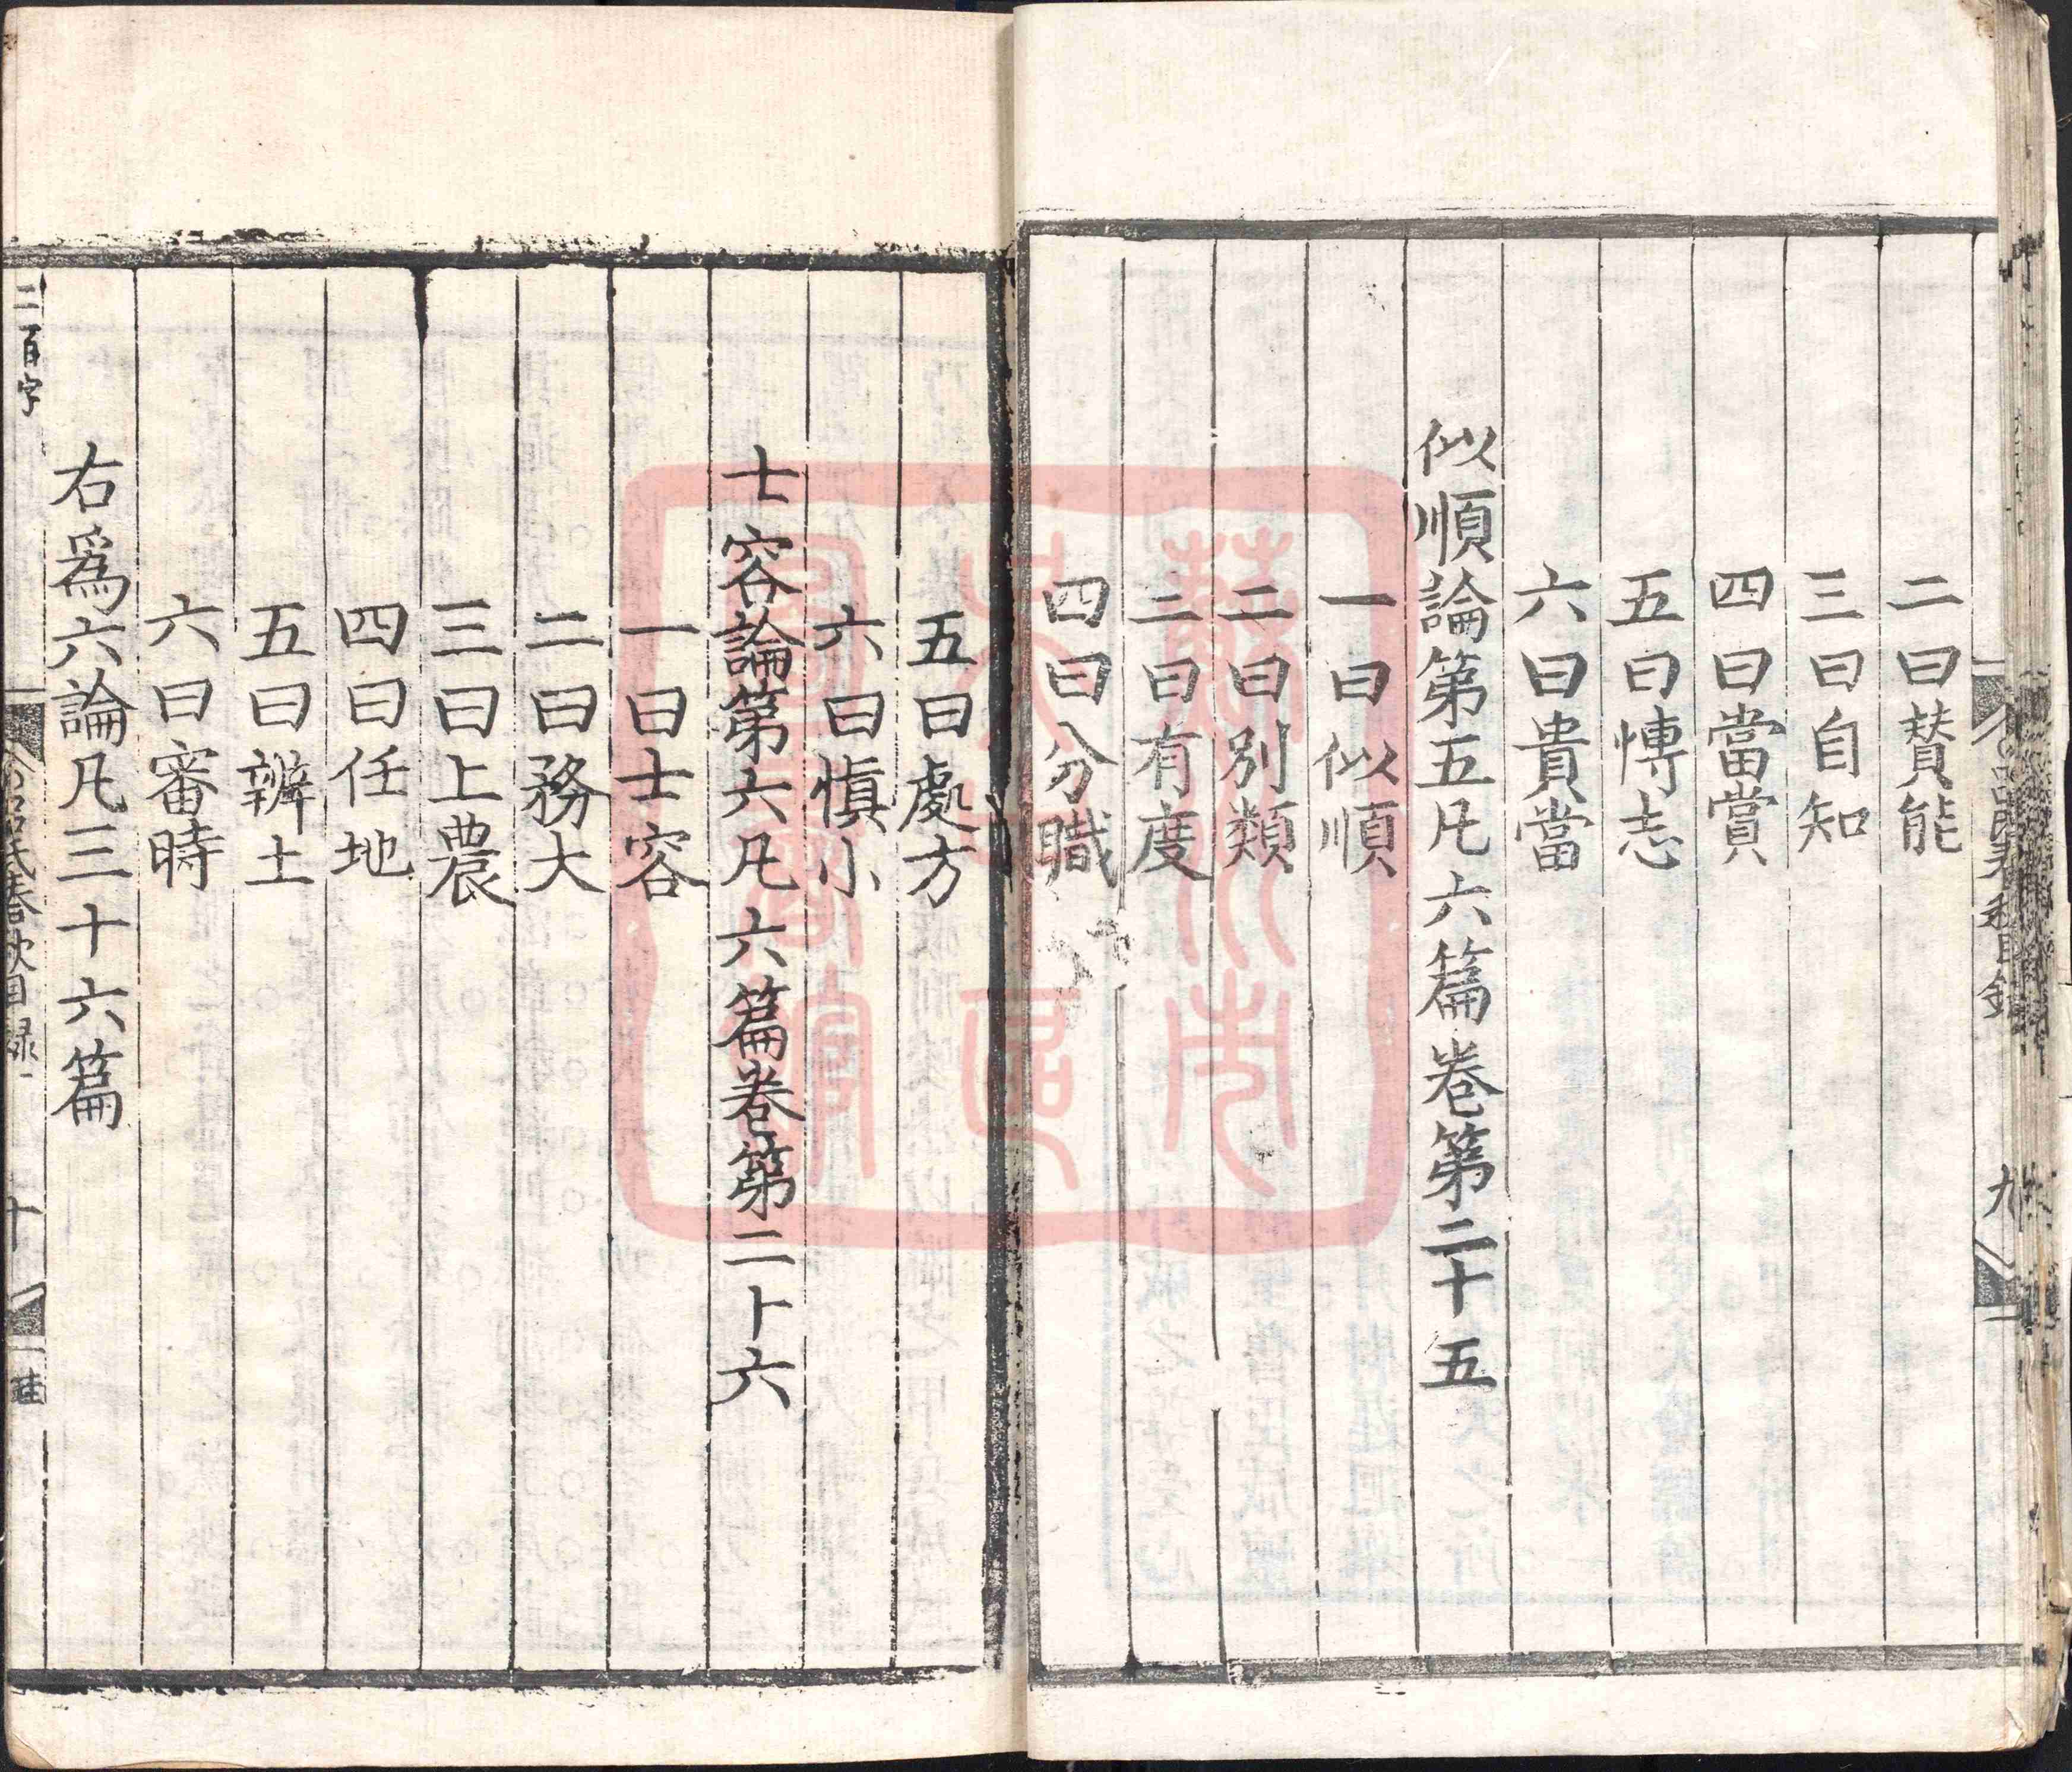 二曰賛能
三曰自知
四曰當賞
五曰愽志
六曰貴當
似順論第五凡六篇卷第二十五
一曰似順
二曰別類
三曰有度
四曰分職
五曰處方
六曰慎小
士容論第六凡六篇卷第二十六
一曰士容
二曰務大
三曰上農
四曰任地
五曰辨土
六曰審時
右爲六論凡三十六篇
二百字
呂氏春秋目録
十
九